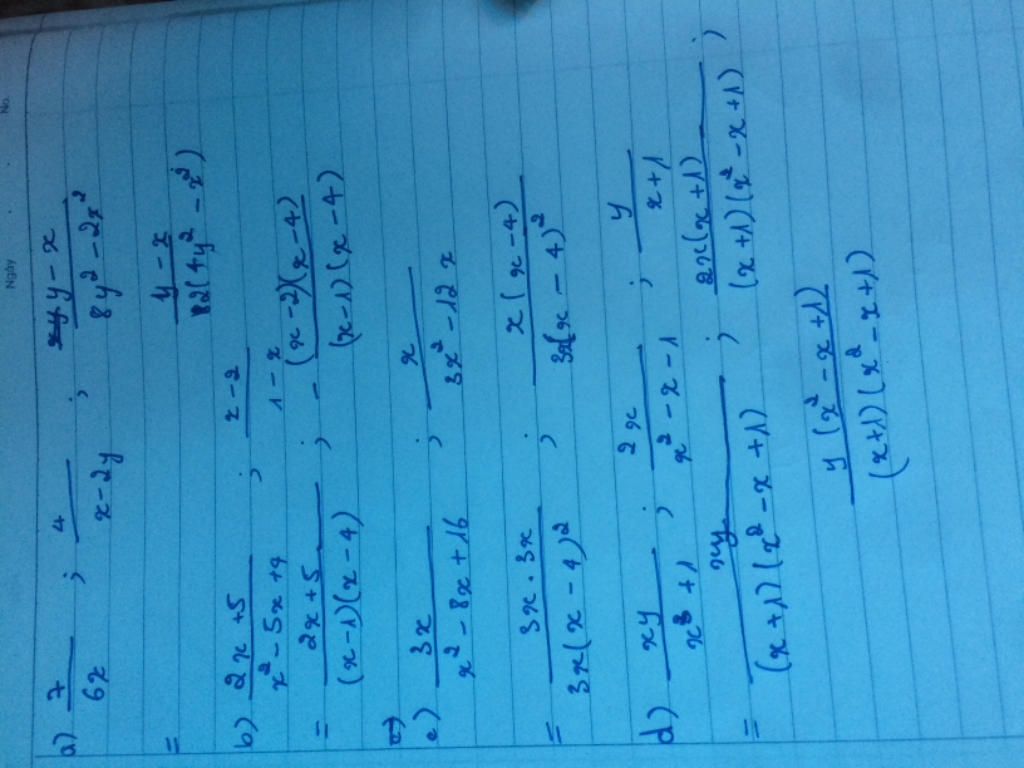 No.
Ngày
a) 7/6x ; 4/(x-2y) ; (y-x)/(8y²-2x²)
= (y-x)/(2(4y²-x²))
b) (2x+5)/(x²-5x+4) ; (x-2)/(1-x)
= (2x+5)/((x-1)(x-4)) ; -((x-2)(x-4))/((x-1)(x-4))
c) 3x/(x²-8x+16) ; x/(3x²-12x)
= (3x.3x)/(3x(x-4)²) ; (x(x-4))/(3x(x-4)²)
d) xy/(x³+1) ; 2x/(x²-x-1) ; y/(x+1)
= xy/((x+1)(x²-x+1)) ; (2x(x+1))/((x+1)(x²-x+1)) ;
(y(x²-x+1))/((x+1)(x²-x+1))